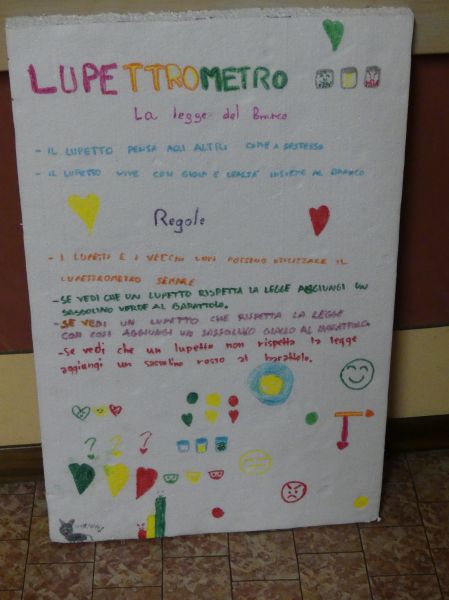 LUPETTROMETRO
La legge del Branco
- IL LUPETTO PENSA AGLI ALTRI COME A SESTESSO
- IL LUPETTO VIVE CON GIOIA E LEALTA' INSIEME AL BRANCO
Regole
- I LUPETTI E I VECCHI LUPI POSSONO UTILIZZARE IL
LUPETTROMETRO SEMPRE
-SE VEDI CHE UN LUPETTO RISPETTA LA LEGGE AGGIUNGI UN
SASSOLINO VERDE AL BARATTOLO.
-SE VEDI UN LUPETTO CHE RISPETTA LA LEGGE
COSI COSI AGGIUNGI UN SASSOLINO GIALLO AL BARATTOLO
-Se vedi che un lupetto non rispetta la legge
aggiungi un sassolino rosso al barattolo.
? ? ?